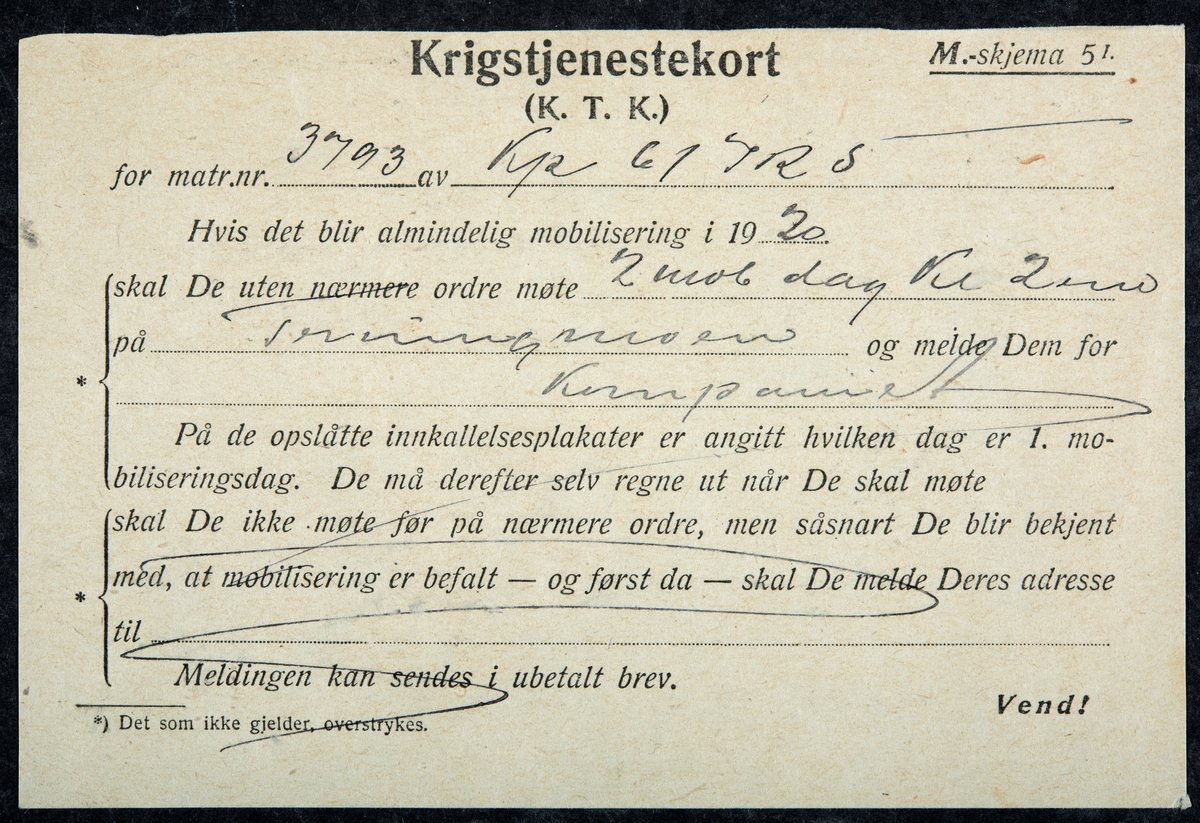 Krigstjenestekort
M.-skjema 5 I.
(K. T. K.)
for matr.nr. 3793 av Kp 6 / IR 5
Hvis det blir almindelig mobilisering i 19 20.
skal De uten nærmere ordre møte 2 mob dag Kl 2
på Terningmoen og melde Dem for
* Kompaniet
På de opslåtte innkallelsesplakater er angitt hvilken dag er 1. mo-
biliseringsdag. De må derefter selv regne ut når De skal møte
skal De ikke møte før på nærmere ordre, men såsnart De blir bekjent
med, at mobilisering er befalt — og først da — skal De melde Deres adresse
*
til
Meldingen kan sendes i ubetalt brev.
Vend!
*) Det som ikke gjelder, overstrykes.